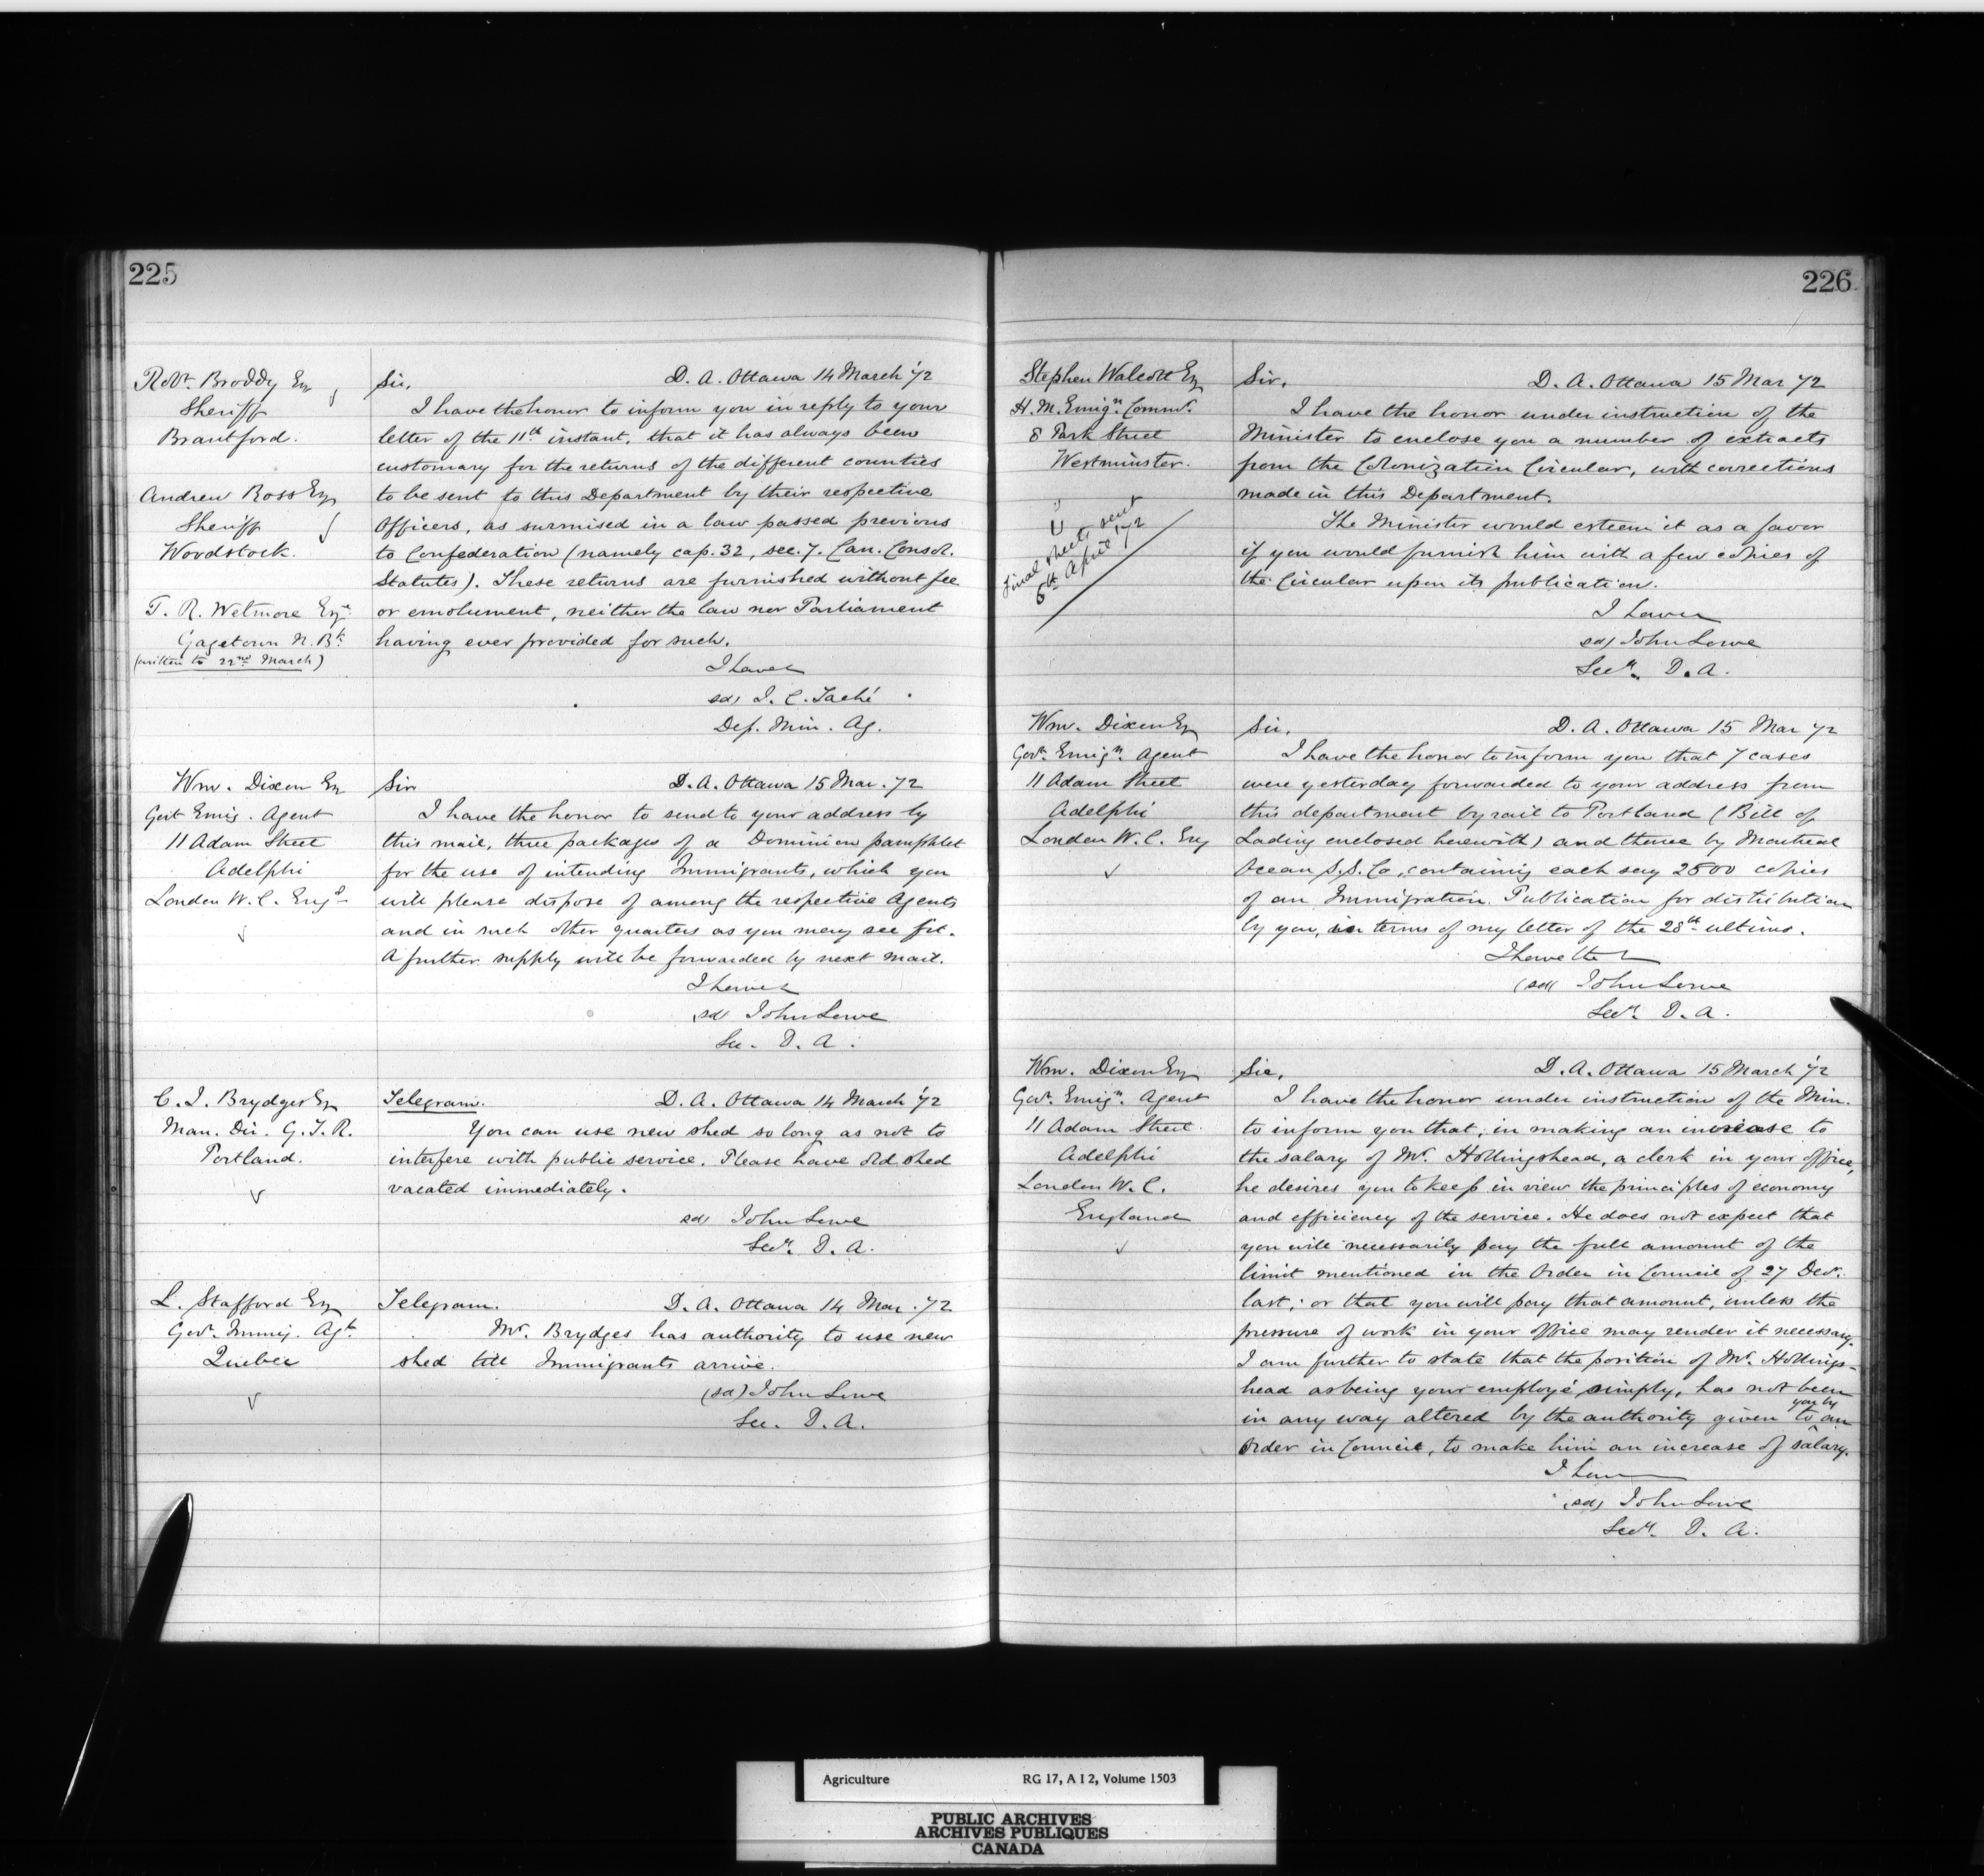 225
Robt. Broddy Esq
Sheriff
Brantford.
Andrew Ross Esq
Sheriff
Woodstock.
T. R. Wetmore Esqr
Gagetown N. Bk.
(written to 22nd March)
Sir, D. A. Ottawa 14 March '72
I have the honor to inform you in reply to your
letter of the 11th instant, that it has always been
customary for the returns of the different counties
to be sent to this Department by their respective
Officers, as surmised in a law passed previous
to Confederation (namely cap. 32, sec. 7. Can. Consol.
Statutes). These returns are furnished without fee
or emolument, neither the law nor Parliament
having ever provided for such.
I have
sd) J. C. Taché
Dep. Min. Ag.
Wm. Dixon Esq
Govt Emig. Agent
11 Adam Street
Adelphi
London W. C. Engd
Sir D. A. Ottawa 15 Mar. 72
I have the honor to send to your address by
this mail, three packages of a Dominion pamphlet
for the use of intending Immigrants, which you
will please dispose of among the respective Agents
and in such other quarters as you may see fit.
A further supply will be forwarded by next mail.
I have
sd) John Lowe
Sec. D. A.
C. J. Brydges Esq
Man. Dir. G. T. R.
Portland.
Telegram. D. A. Ottawa 14 March '72
You can use new shed so long as not to
interfere with public service. Please have old shed
vacated immediately.
sd) John Lowe
Secy. D. A.
L. Stafford Esq
Govt. Immig. Agt.
Quebec
Telegram. D. A. Ottawa 14 Mar. 72
Mr. Brydges has authority to use new
shed till Immigrants arrive.
(sd) John Lowe
Sec. D. A.
226
Stephen Walcott Esq
H. M. Emign. Commr.
8 Park Street
Westminster.
Final sheets sent
6th April '72
Sir, D. A. Ottawa 15 Mar 72
I have the honor under instruction of the
Minister to enclose you a number of extracts
from the Colonization Circular, with corrections
made in this Department.
The Minister would esteem it as a favor
if you would furnish him with a few copies of
the Circular upon its publication.
I have
sd) John Lowe
Secy. D. A.
Wm. Dixon Esq
Govt. Emign. Agent
11 Adam Street
Adelphi
London W. C. Eng
Sir, D. A. Ottawa 15 Mar 72
I have the honor to inform you that 7 cases
were yesterday forwarded to your address from
this department by rail to Portland (Bill of
Lading enclosed herewith) and thence by Montreal
Ocean S.S. Co, containing each say 2500 copies
of an Immigration Publication for distribution
by you, in terms of my letter of the 28th ultimo.
I have the
(sd) John Lowe
Secy. D. A.
Wm. Dixon Esq
Govt. Emign. Agent
11 Adam Street
Adelphi
London W. C.
England
Sir, D. A. Ottawa 15 March '72
I have the honor under instruction of the Min.
to inform you that, in making an increase to
the salary of Mr. Hollingshead, a clerk in your office,
he desires you to keep in view the principles of economy
and efficiency of the service. He does not expect that
you will necessarily pay the full amount of the
limit mentioned in the Order in Council of 27 Decr.
last; or that you will pay that amount, unless the
pressure of work in your office may render it necessary.
I am further to state that the position of Mr. Hollings-
head as being your employé simply, has not been
in any way altered by the authority given to you by an
Order in Council, to make him an increase of salary.
I have
(sd) John Lowe
Secy. D. A.
Agriculture RG 17, A I 2, Volume 1503
PUBLIC ARCHIVES
ARCHIVES PUBLIQUES
CANADA